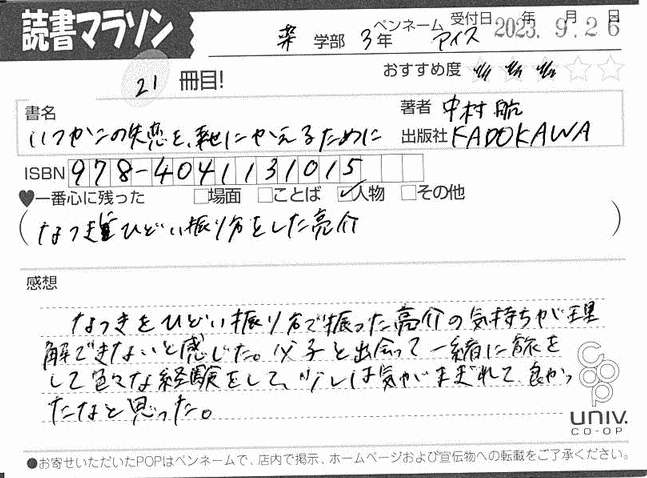 読書マラソン
薬 学部 3年 ペンネーム アイス 受付日 2023.年9.月26日
21 冊目!
おすすめ度
書名 いつかこの失恋を、幸せにかえるために
著者 中村航
出版社 KADOKAWA
ISBN 978-4041131015
♥一番心に残った □場面 □ことば ☑人物 □その他
(なつきをひどい振り方をした亮介)
感想
なつきをひどい振り方で振った亮介の気持ちが理
解できないと感じた。父子と出会って一緒に旅を
して色々な経験をして、少しは気がまぎれて良かっ
たなと思った。
coop
univ.
CO-OP
●お寄せいただいたPOPはペンネームで、店内で掲示、ホームページおよび宣伝物への転載をご了承ください。